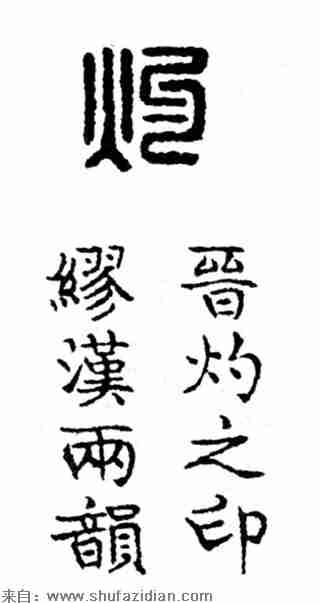 灼
晉灼之印
繆漢兩韻
来自：www.shufazidian.com